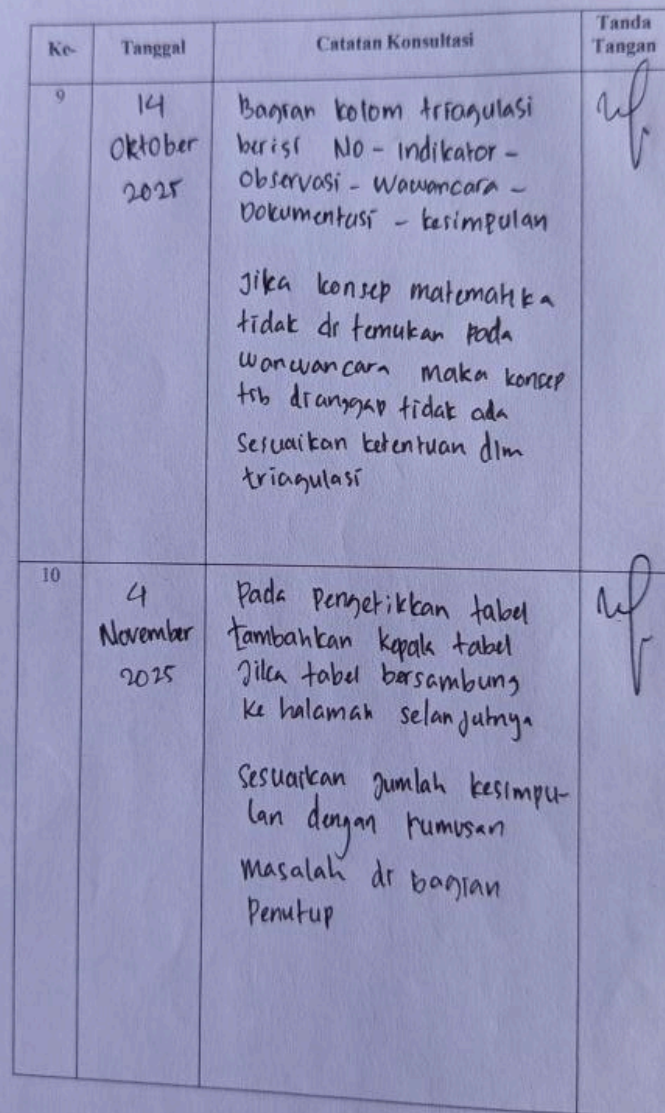 Ke-
Tanggal
Catatan Konsultasi
Tanda
Tangan
9
14
Oktober
2025
Bagian kolom triagulasi
berisi No - indikator -
Observasi - Wawancara -
Dokumentasi - kesimpulan
Jika konsep matematika
tidak di temukan pada
wanwancara maka konsep
tsb dianggap tidak ada
Sesuaikan ketentuan dlm
triagulasi
10
4
November
2025
Pada Pengetikkan tabel
tambahkan kepala tabel
Jika tabel bersambung
ke halaman selanjutnya
Sesuaikan Jumlah kesimpu-
lan dengan rumusan
masalah di bagian
Penutup